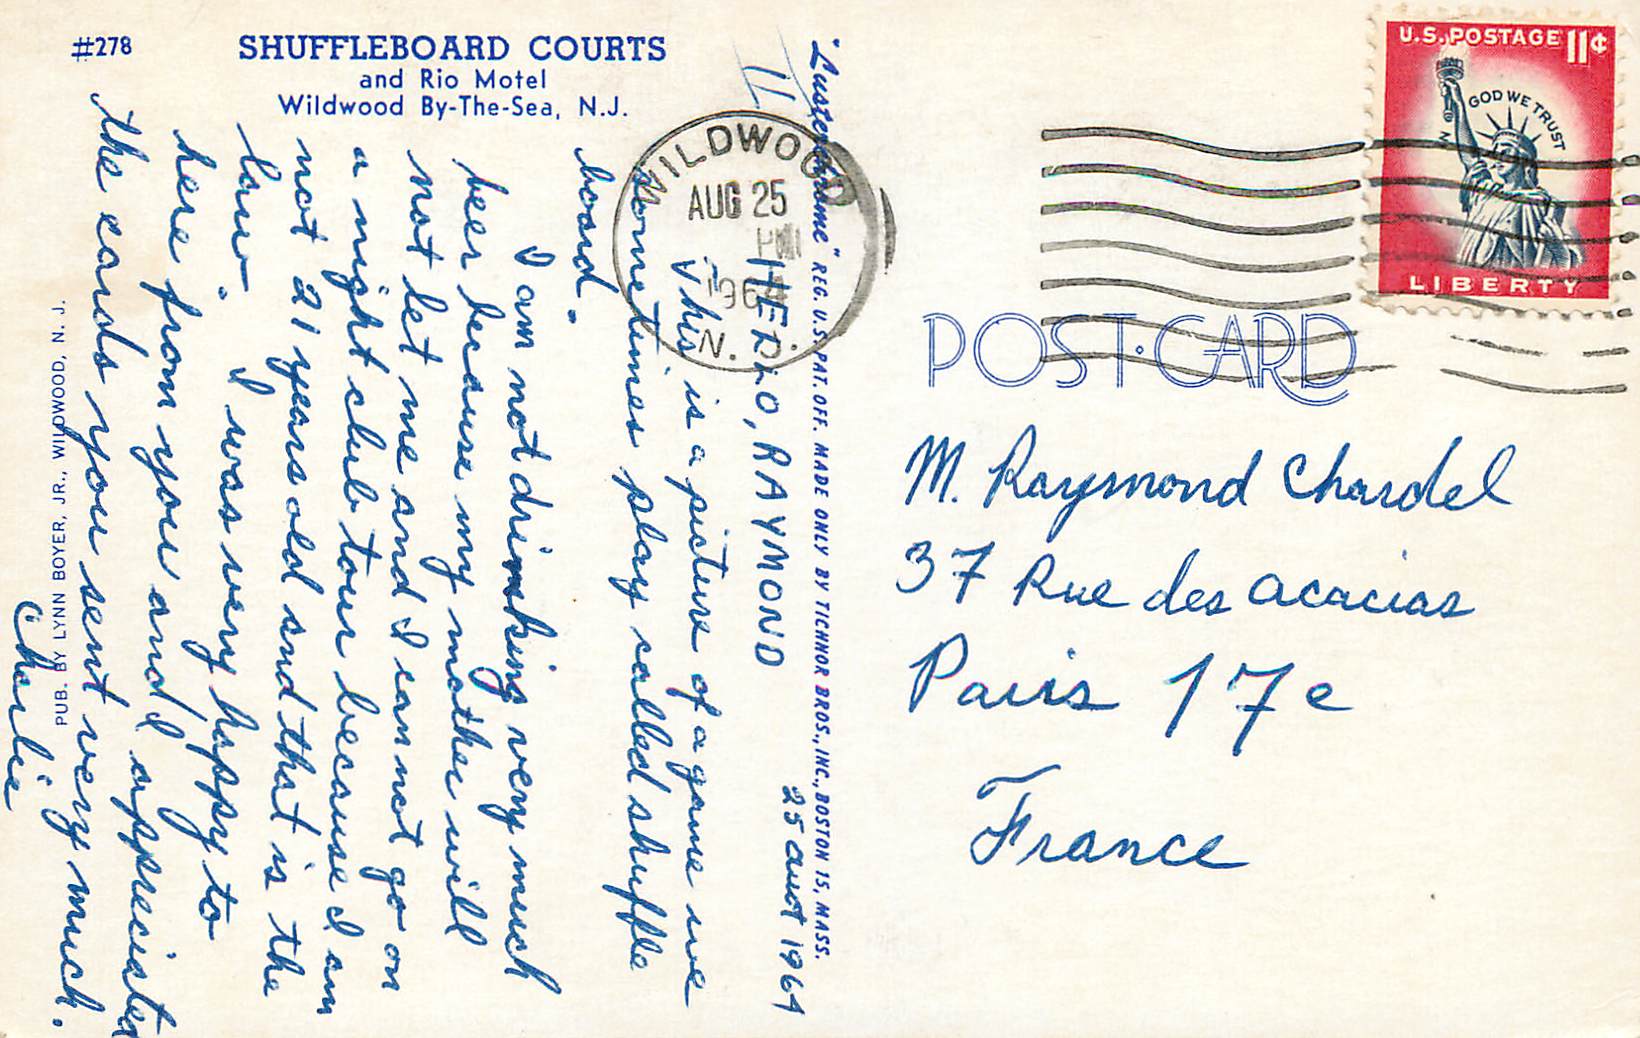 #278
SHUFFLEBOARD COURTS
and Rio Motel
Wildwood By-The-Sea, N.J.
PUB. BY LYNN BOYER, JR., WILDWOOD, N. J.
"Lusterchrome" REG. U.S. PAT. OFF. MADE ONLY BY TICHNOR BROS., INC., BOSTON 15, MASS.
25 aust 1964
HELLO, RAYMOND
This is a picture of a game we
sometimes play called shuffle
board.
I am not drinking very much
beer because my mother will
not let me and I can not go on
a night club tour because I am
not 21 years old and that is the
law. I was very happy to
here from you and I appreciated
the cards you sent very much.
Charlie
11
WILDWOOD
AUG 25
PM
1964
N. J.
U.S. POSTAGE 11¢
IN GOD WE TRUST
LIBERTY
POST CARD
M. Raymond Chardel
37 Rue des acacias
Paris 17e
France